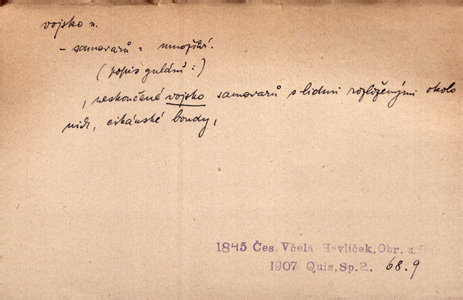 vojsko n.
- samovarů : množství.
(popis guláni :)
, neskončené vojsko samovarů s lidmi rozloženými okolo
nich, cikánské boudy,
1845 Čes. Včela Havlíček, Obr. z
1907 Quis, Sp. 2. 68.9